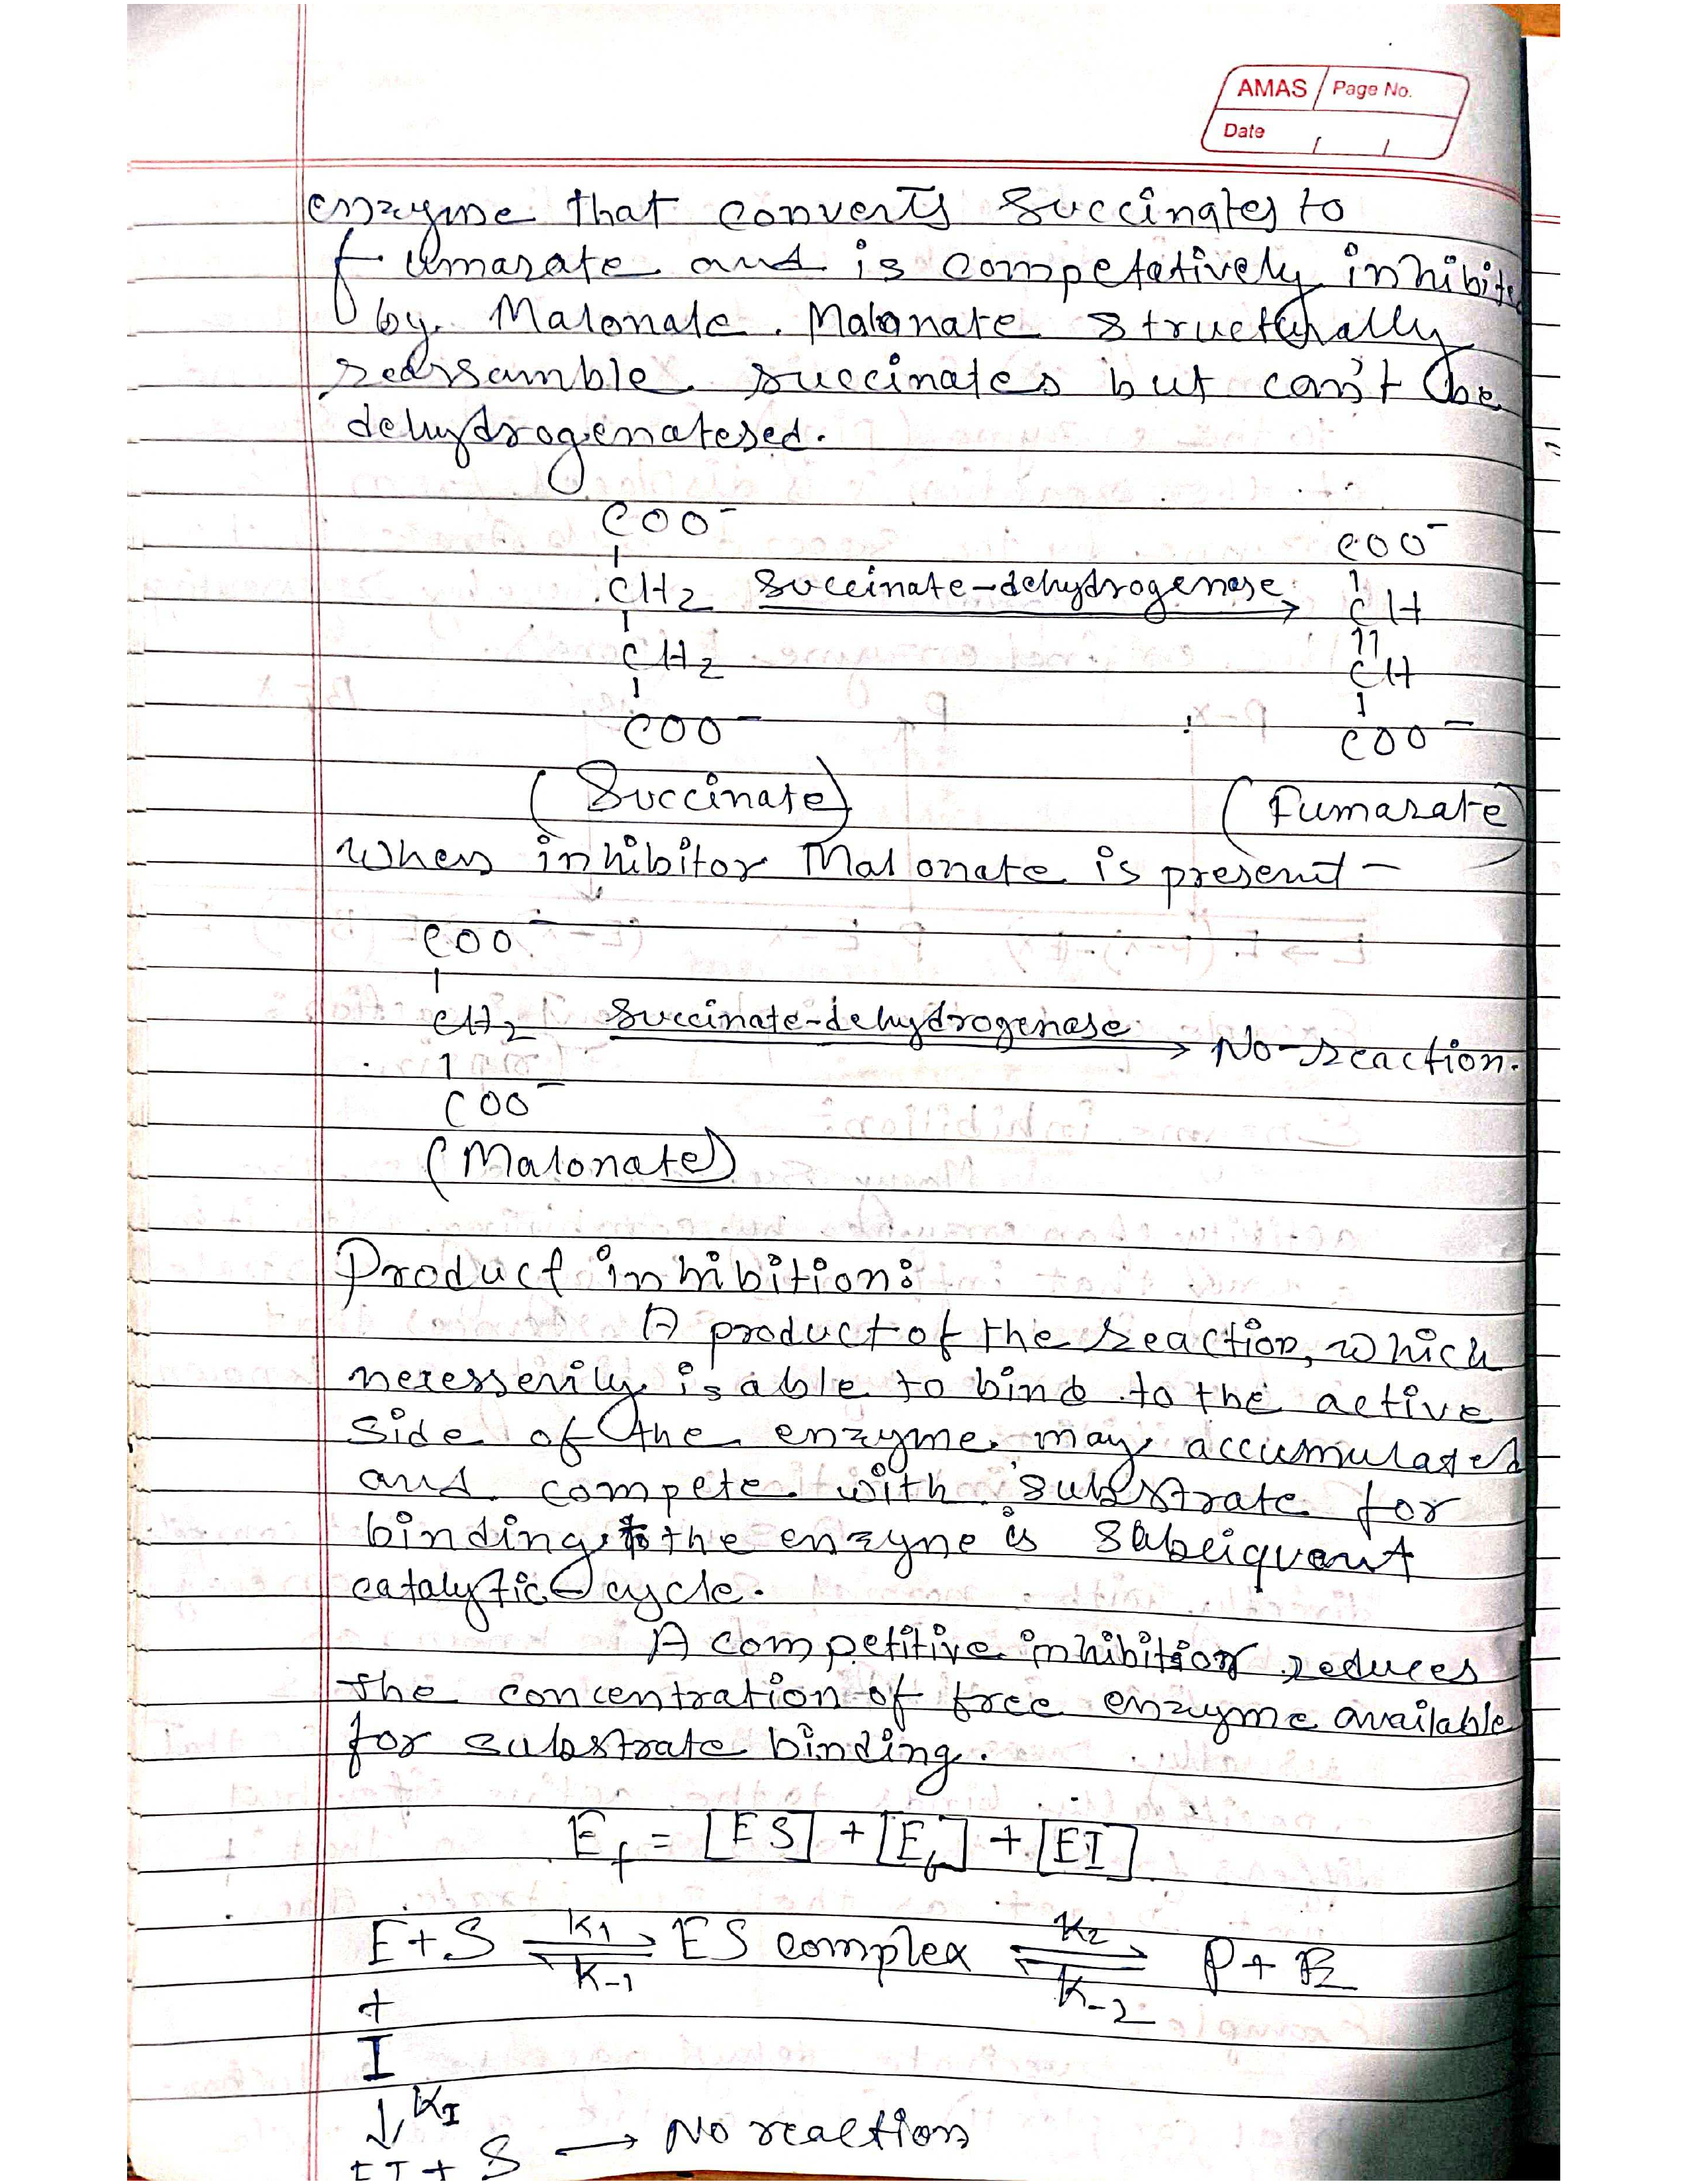 AMAS Page No.
Date / /
enzyme that converts succinates to
fumarate and is competatively inhibite
by Malonate. Malonate structurally
reassamble succinates but can't be
dehydrogenatesed.
COO⁻
|
CH2
|
CH2
|
COO⁻
(Succinate)
succinate-dehydrogenase →
COO⁻
|
CH
||
CH
|
COO⁻
(Fumarate)
When inhibitor Malonate is present -
COO⁻
|
CH2 Succinate-dehydrogenase → No-reaction.
|
COO⁻
(Malonate)
Product inhibition:
A product of the reaction, which
necesserily is able to bind to the active
side of the enzyme may accumulated
and compete with substrate for
binding to the enzyne is subsiquent
catalytic cycle.
A competitive inhibitior reduces
the concentration of free enzyme available
for substrate binding.
E_f = [ES] + [E_f] + [EI]
E+S ⇌ ES complex ⇌ P+E
K1 K-1 K2 K-2
+
I
↓ KI
EI + S → No reaction